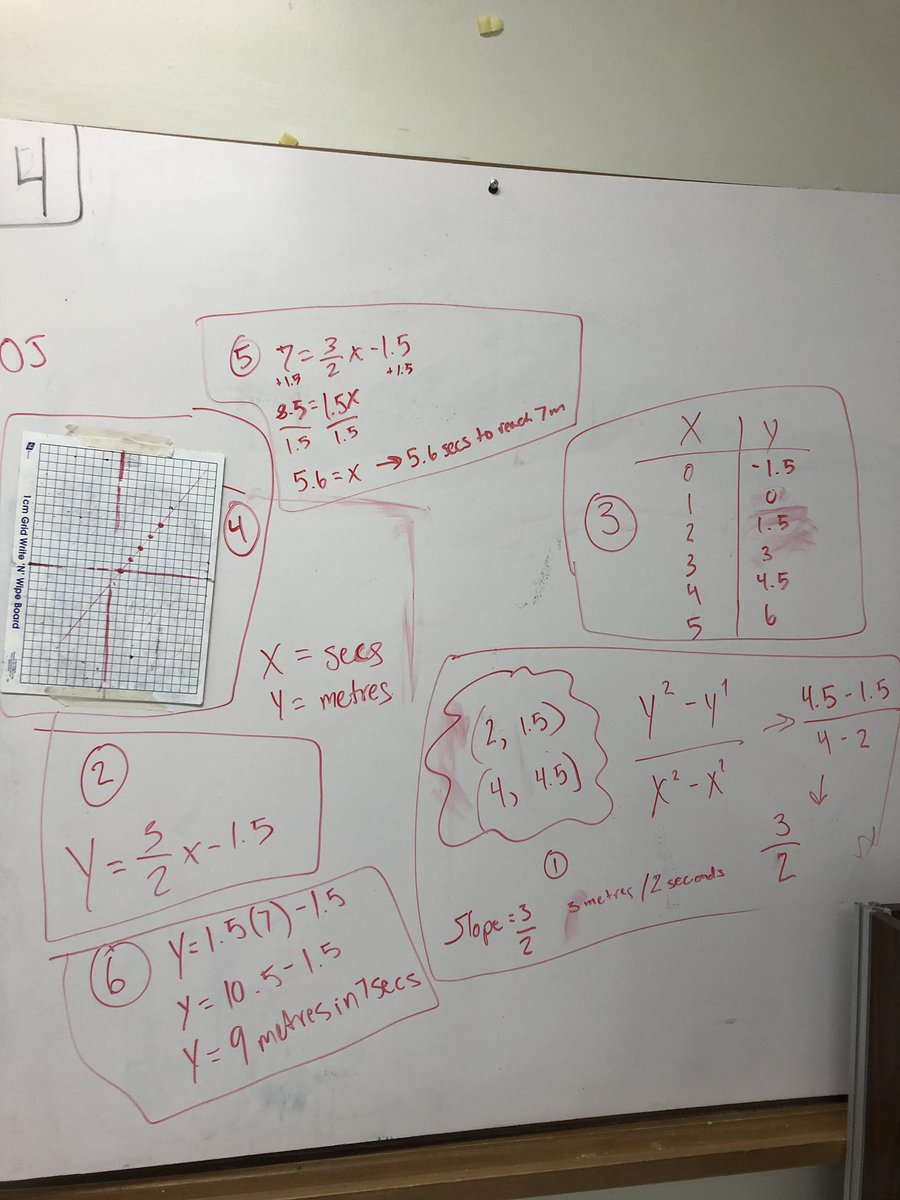 4
OJ
5
7 = 3/2 x - 1.5
+1.5 +1.5
8.5 = 1.5x
1.5 1.5
5.6 = x → 5.6 secs to reach 7m
1cm Grid Write 'N' Wipe Board
4
3
X | y
0 | -1.5
1 | 0
2 | 1.5
3 | 3
4 | 4.5
5 | 6
X = secs
Y = metres
2
Y = 3/2 x - 1.5
(2, 1.5)
(4, 4.5)
y² - y¹ / x² - x¹ → 4.5 - 1.5 / 4 - 2
↓
3/2
1
Slope = 3/2 3 metres / 2 seconds
6
Y = 1.5(7) - 1.5
y = 10.5 - 1.5
y = 9 metres in 7 secs